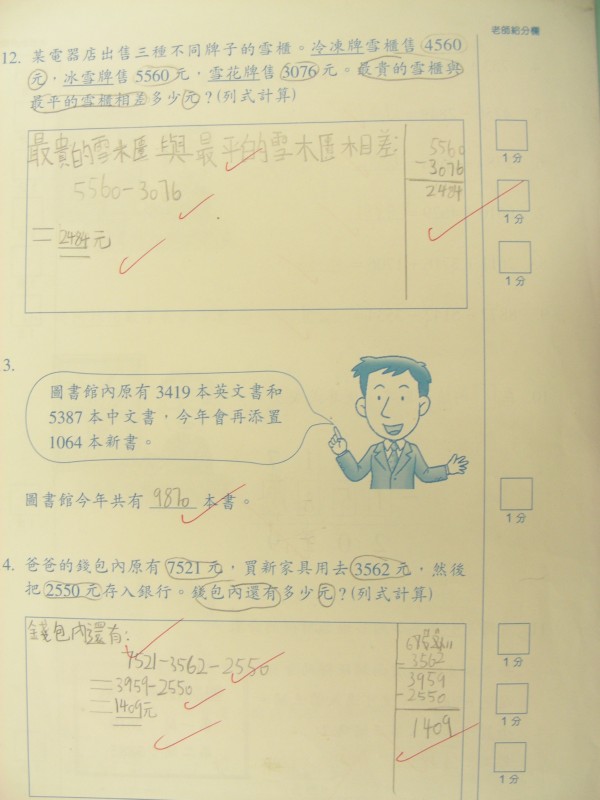 老師給分欄
12. 某電器店出售三種不同牌子的雪櫃。冷凍牌雪櫃售 4560
元，冰雪牌售 5560 元，雪花牌售 3076 元。最貴的雪櫃與
最平的雪櫃相差多少元？(列式計算)
最貴的雪木匧與最平的雪木匧相差
5560-3076
=2484元
5560
-3076
2484
1分
1分
1分
3.
圖書館內原有 3419 本英文書和
5387 本中文書，今年會再添置
1064 本新書。
圖書館今年共有 9870 本書。
1分
4. 爸爸的錢包內原有 7521 元，買新家具用去 3562 元，然後
把 2550 元存入銀行。錢包內還有多少元？(列式計算)
錢包內還有：
7521-3562-2550
=3959-2550
=1409元
3562
3959
-2550
1409
1分
1分
1分